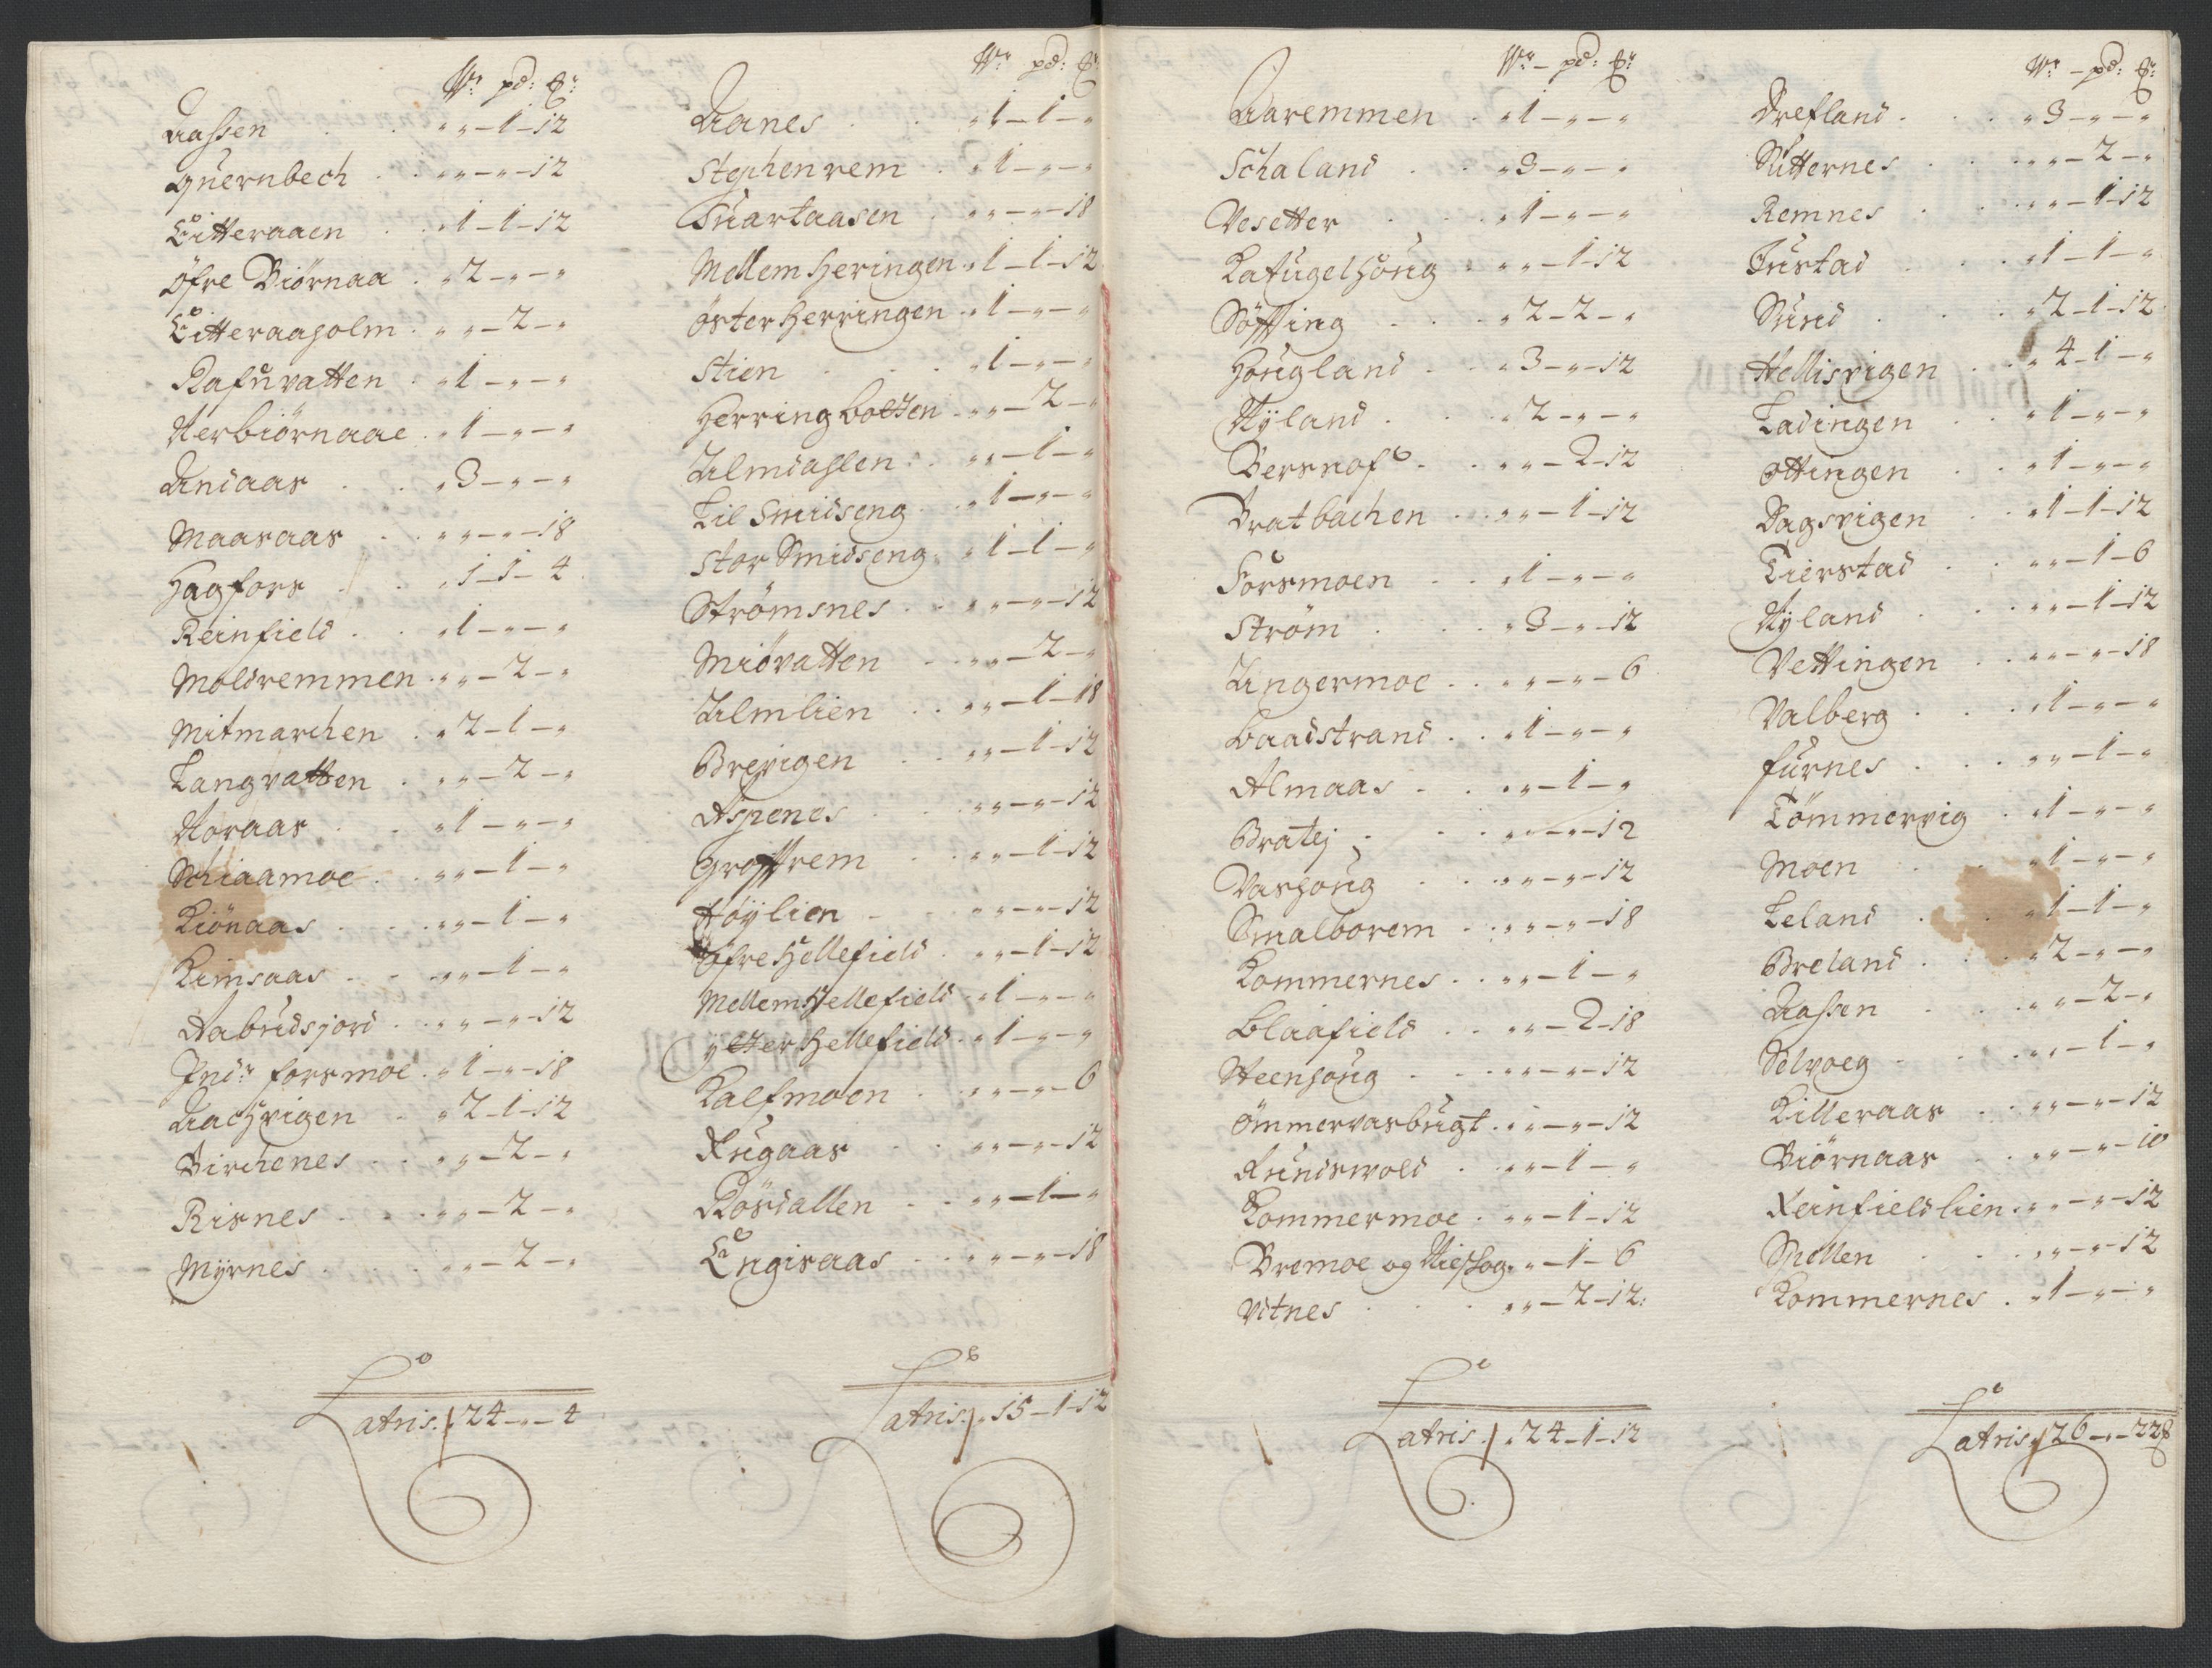 W: pd: ℔:
Aassen . . „ „ – 1 – 12
Quernbech . . „ „ – „ – 12
Litteraaen . . „ 1 – 1 – 12
öfre Biörnaa . „ 2 – „ – „
Litteraaholm . „ „ – 2 – „
Rafuvatten . „ 1 – „ – „
Nerbiörnaae . „ 1 – „ – „
Andaas . . „ 3 – „ – „
Maasaas . . „ „ – „ – 18
Hagfors . . „ 1 – 1 – 4
Reinfield . . „ 1 – „ – „
Moldremmen . „ „ – 2 – „
Mitmarchen . „ 2 – 1 – „
Langvatten . „ „ – 2 – „
Noraas . . „ 1 – „ – „
Schiaamoe . . „ „ – 1 – „
Kiönaas . . „ „ – 1 – „
Kimsaas . . „ „ – 1 – „
Aabudsjord . . „ „ – „ – 12
Indr forsmoe . „ 1 – „ – 18
Aachvigen . „ 2 – 1 – 12
Birchenes . . „ „ – 2 – „
Risnes . . „ „ – 2 – „
Myrnes . . „ „ – 2 – „
Latris. „ 24 – „ – 4
W: pd: ℔:
Aanes . . „ 1 – 1 – „
Stephenrem . „ 1 – „ – „
Suartaasen . „ „ – „ – 18
Mellem Heringen „ 1 – 1 – 12
öster Herringen „ 1 – „ – „
Stien . . „ 1 – „ – „
Herringbotten „ „ – 2 – „
Almdahlen . „ „ – 1 – „
Lil Smidseng . „ 1 – „ – „
Stor Smidseng „ 1 – 1 – „
Strömsnes . . „ „ – „ – 12
Miövatten . . „ „ – 2 – „
Almlien . . „ „ – 1 – 18
Brevigen . . „ „ – 1 – 12
Aspenes . . „ „ – „ – 12
Groffrem . . „ „ – 1 – 12
Höylien . . „ „ – „ – 12
öfre Hellefield . „ „ – 1 – 12
Mellem Hellefield „ 1 – „ – „
ytter Hellefield „ 1 – „ – „
Kalfmoen . . „ „ – „ – 6
Rugaas . . „ „ – „ – 12
Rösdallen . . „ „ – 1 – „
Engisaas . . „ „ – „ – 18
Latris. „ 15 – 1 – 12
W: – pd: ℔:
Aaremmen . „ 1 – „ – „
Schaland . . „ 3 – „ – „
Vesetter . . „ 1 – „ – „
Kafugelhoug . „ „ – 1 – 12
Söffting . . „ 2 – 2 – „
Hougland . . „ 3 – „ – 12
Nyland . . „ 2 – „ – „
Bersnof . . „ „ – 2 – 12
Bratbachen . „ „ – 1 – 12
Forsmoen . . „ 1 – „ – „
Ström . . „ 3 – „ – 12
Ungermoe . . „ „ – „ – 6
Baadstrand . . „ 1 – „ – „
Almaas . . „ „ – 1 – „
Bratej . . „ „ – „ – 12
Vashoug . . „ „ – „ – 12
Smalborem . . „ „ – „ – 18
Kommernes . . „ „ – 1 – „
Blaafield . . „ „ – 2 – 18
Steenhoug . . „ „ – „ – 12
ömmervasbugt . „ „ – „ – 12
Rundswold . „ „ – 1 – „
Kommermoe . „ „ – 1 – 12
Bremoe og „ „ – 1 – 6
Vitnes . . „ „ – 2 – 12
Latris. „ 24 – 1 – 12
W: – pd: ℔:
Drefland . . „ 3 – „ – „
Sutternes . . „ „ – 2 – „
Remnes . . „ „ – 1 – 12
Fustad . . „ 1 – 1 – „
Sund . . „ 2 – 1 – 12
Hellisvigen . . „ 4 – 1 – „
Ladingen . . „ 1 – „ – „
ottingen . . „ 1 – „ – „
Dagsvigen . . „ 1 – 1 – 12
Tierstad . . „ „ – 1 – 6
Nyland . . „ „ – 1 – 12
Vettingen . . „ „ – „ – 18
Valberg . . „ 1 – „ – „
furnes . . „ „ – 1 – „
Tömmervig . „ 1 – „ – „
Moen . . „ 1 – „ – „
Leland . . „ 1 – 1 – „
Breland . . „ 2 – „ – „
Aassen . . „ „ – 2 – „
Selvoeg . . „ „ – 1 – „
Killeraas . . „ „ – „ – 12
Biörnaas . . „ „ – „ – 10
Reinfieldlien . „ „ – „ – 12
Spellen . . „ „ – „ – 12
Kommernes . „ 1 – „ – „
Latris. „ 26 – „ – 22 ℔